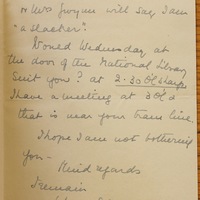 or Mrs Gwynn will say I am
"a slacker".
Would Wednesday at
the door of the National Library
suit you? at 2.30 o'c sharp
I have a meeting at 3 o'c &
that is near your tram line.
I hope I am not bothering
you -
Kind regards
I remain